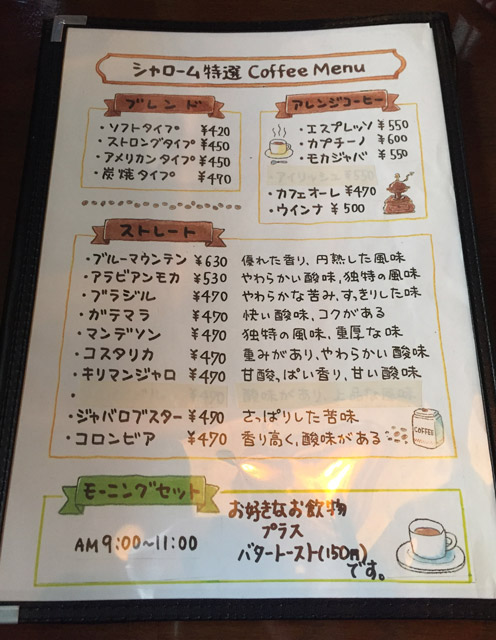 シャローム特選 Coffee Menu
ブレンド
・ソフトタイプ ¥420
・ストロングタイプ ¥450
・アメリカンタイプ ¥450
・炭焼タイプ ¥470
アレンジコーヒー
・エスプレッソ ¥550
・カプチーノ ¥600
・モカジャバ ¥550
・カフェオーレ ¥470
・ウインナ ¥500
ストレート
・ブルーマウンテン ¥630 優れた香り、円熟した風味
・アラビアンモカ ¥530 やわらかい酸味、独特の風味
・ブラジル ¥470 やわらかな苦み、すっきりした味
・ガテマラ ¥470 快い酸味、コクがある
・マンデソン ¥490 独特の風味、重厚な味
・コスタリカ ¥490 重みがあり、やわらかい酸味
・キリマンジャロ ¥490 甘酸っぱい香り、甘い酸味
・ジャバロブスター ¥490 さっぱりした苦味
・コロンビア ¥470 香り高く、酸味がある
COFFEE
モーニングセット
AM 9:00~11:00
お好きなお飲物
プラス
バタートースト(150円)
です。